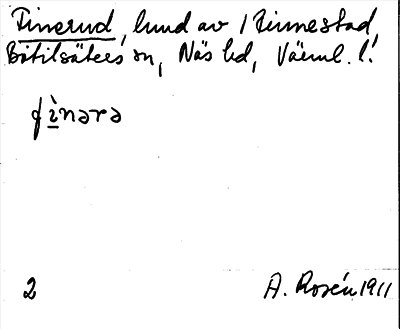 Finerud, lund av 1 Finnestad,
Botilsäters sn, Näs hd, Värml. l.
fìnərə
2 A. Rosén 1911